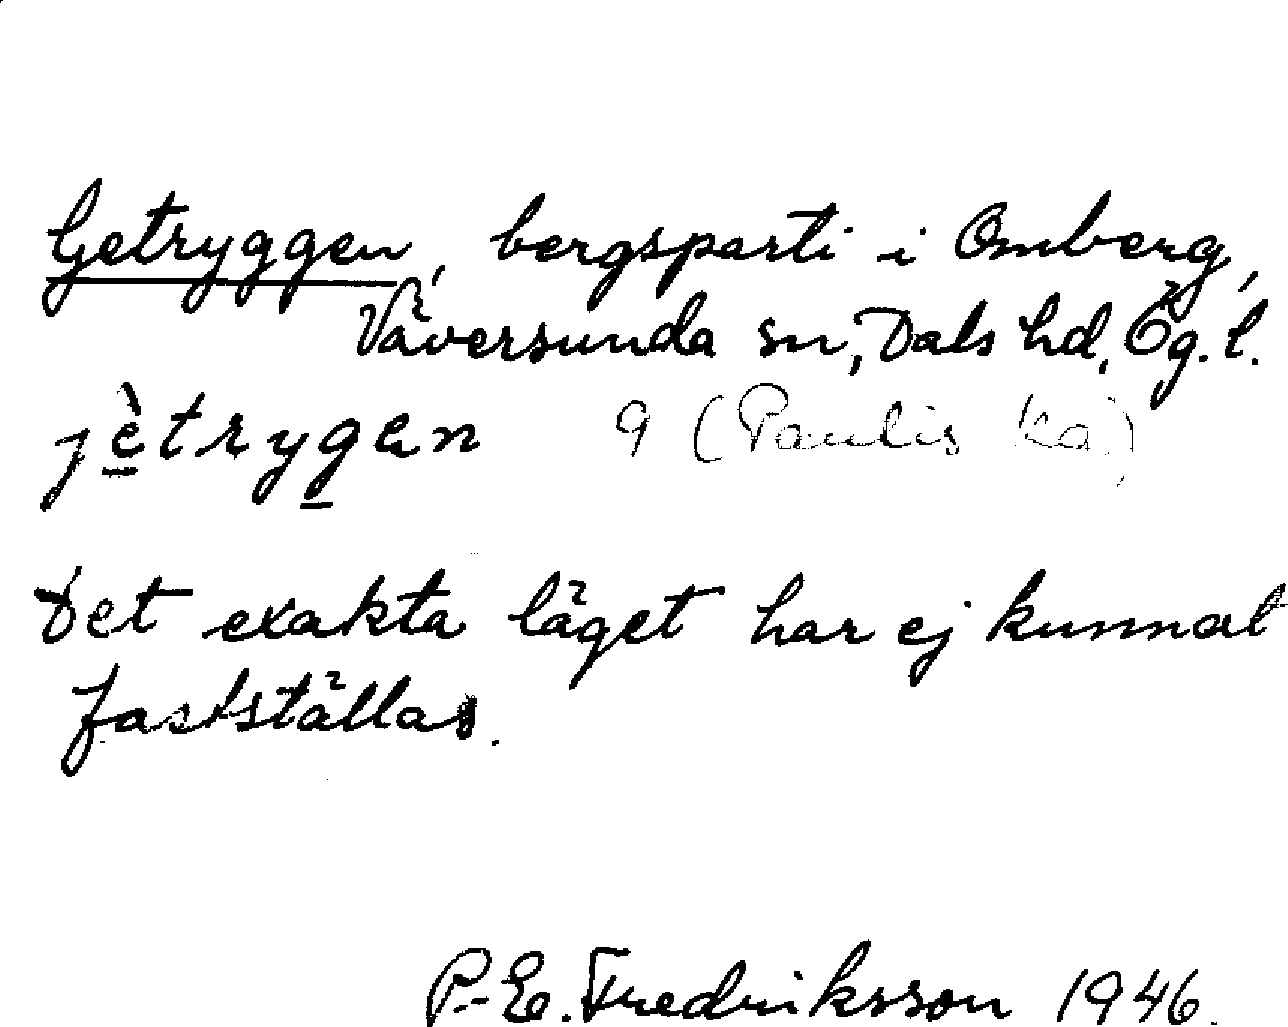 Getryggen, bergsparti i Omberg,
Väversunda sn, Dals hd, Ög. l.
jètrygen 9 (Paulis ka)
Det exakta läget har ej kunnat
fastställas.
P-E. Fredriksson 1946.